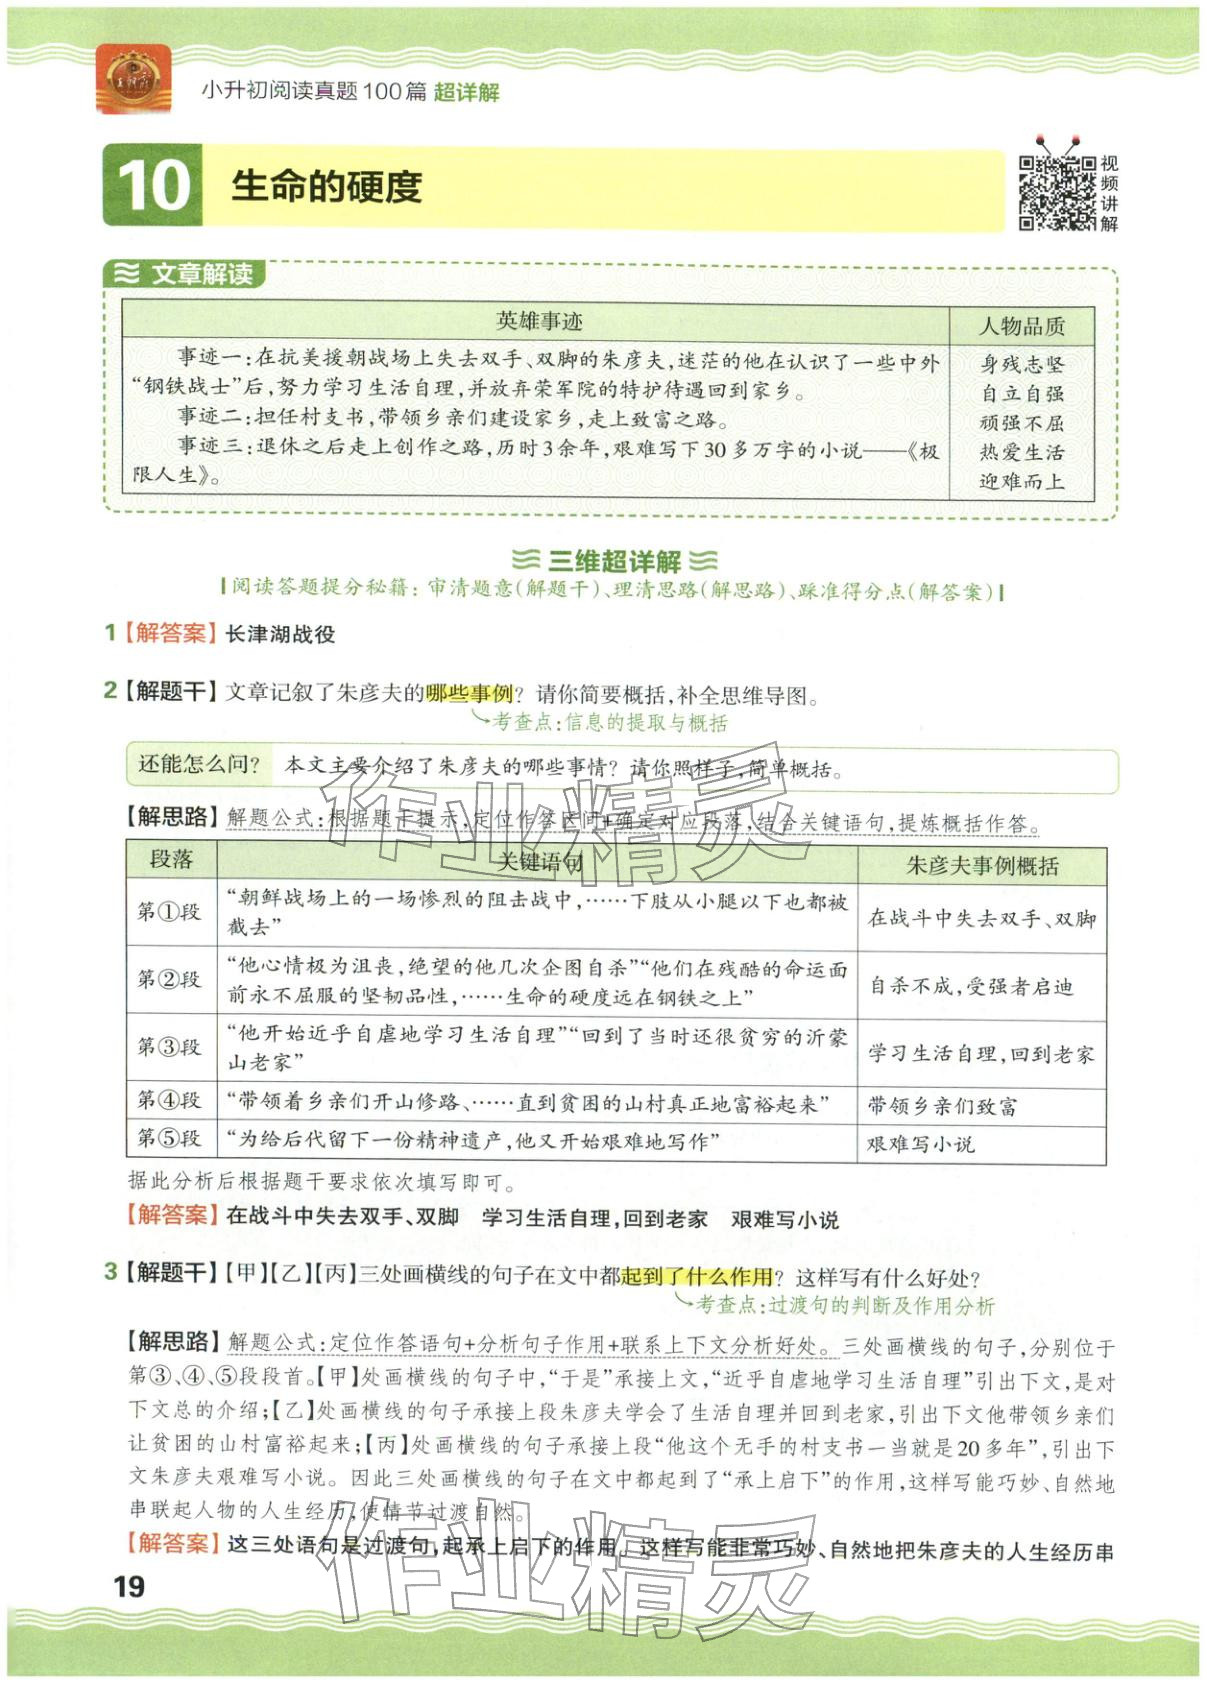 小升初阅读真题100篇 超详解
10 生命的硬度
视频讲解
文章解读
英雄事迹 人物品质
事迹一:在抗美援朝战场上失去双手、双脚的朱彦夫,迷茫的他在认识了一些中外
“钢铁战士”后,努力学习生活自理,并放弃荣军院的特护待遇回到家乡。
事迹二:担任村支书,带领乡亲们建设家乡,走上致富之路。
事迹三:退休之后走上创作之路,历时3余年,艰难写下30多万字的小说——《极
限人生》。
身残志坚
自立自强
顽强不屈
热爱生活
迎难而上
三维超详解
阅读答题提分秘籍:审清题意(解题干)、理清思路(解思路)、踩准得分点(解答案)
1【解答案】长津湖战役
2【解题干】文章记叙了朱彦夫的哪些事例?请你简要概括,补全思维导图。
考查点:信息的提取与概括
还能怎么问? 本文主要介绍了朱彦夫的哪些事情?请你照样子,简单概括。
【解思路】解题公式:根据题干提示,定位作答区间+确定对应段落,结合关键语句,提炼概括作答。
段落 关键语句 朱彦夫事例概括
第①段 “朝鲜战场上的一场惨烈的阻击战中,……下肢从小腿以下也都被
截去” 在战斗中失去双手、双脚
第②段 “他心情极为沮丧,绝望的他几次企图自杀”“他们在残酷的命运面
前永不屈服的坚韧品性,……生命的硬度远在钢铁之上” 自杀不成,受强者启迪
第③段 “他开始近乎自虐地学习生活自理”“回到了当时还很贫穷的沂蒙
山老家” 学习生活自理,回到老家
第④段 “带领着乡亲们开山修路、……直到贫困的山村真正地富裕起来” 带领乡亲们致富
第⑤段 “为给后代留下一份精神遗产,他又开始艰难地写作” 艰难写小说
据此分析后根据题干要求依次填写即可。
【解答案】在战斗中失去双手、双脚 学习生活自理,回到老家 艰难写小说
3【解题干】【甲】【乙】【丙】三处画横线的句子在文中都起到了什么作用?这样写有什么好处?
考查点:过渡句的判断及作用分析
【解思路】解题公式:定位作答语句+分析句子作用+联系上下文分析好处。三处画横线的句子,分别位于
第③、④、⑤段段首。【甲】处画横线的句子中,“于是”承接上文,“近乎自虐地学习生活自理”引出下文,是对
下文总的介绍;【乙】处画横线的句子承接上段朱彦夫学会了生活自理并回到老家,引出下文他带领乡亲们
让贫困的山村富裕起来;【丙】处画横线的句子承接上段“他这个无手的村支书一当就是20多年”,引出下
文朱彦夫艰难写小说。因此三处画横线的句子在文中都起到了“承上启下”的作用,这样写能巧妙、自然地
串联起人物的人生经历,使情节过渡自然。
【解答案】这三处语句是过渡句,起承上启下的作用。这样写能非常巧妙、自然地把朱彦夫的人生经历串
19
作业精灵
作业精灵